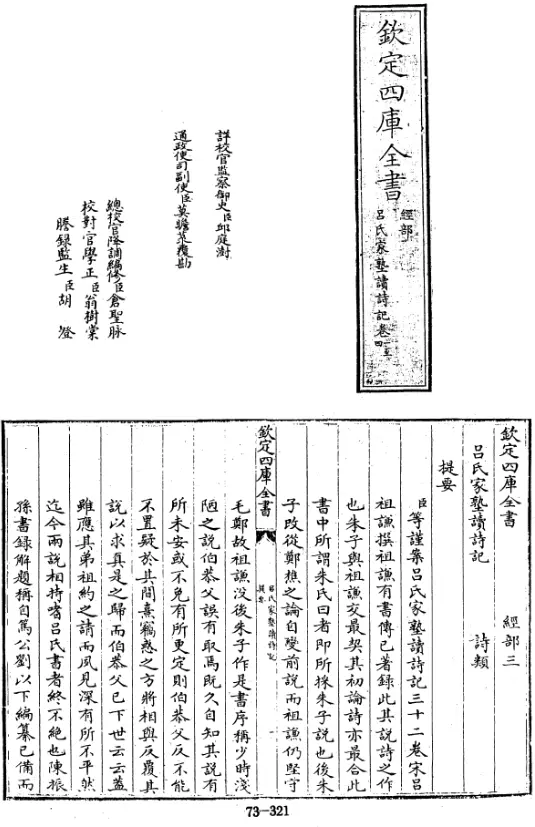 欽定四庫全書
經部
呂氏家塾讀詩記卷四
詳校官監察御史臣邱庭漋
通政使司副使臣莫瞻菉覆勘
總校官降調編修臣倉聖脉
校對官學正臣翁樹棠
謄錄監生臣胡澄
欽定四庫全書 經部三
呂氏家塾讀詩記 詩類
提要
臣等謹案呂氏家塾讀詩記三十二卷宋呂
祖謙撰祖謙有書傳已著錄此其說詩之作
也朱子與祖謙交最契其初論詩亦最合此
書中所謂朱氏曰者即所採朱子說也後朱
子改從鄭樵之論自變前說而祖謙仍堅守
欽定四庫全書
呂氏家塾讀詩記
提要
毛鄭故祖謙没後朱子作是書序稱少時淺
陋之說伯恭父誤有取焉既久自知其說有
所未安或不免有所更定則伯恭父反不能
不置疑於其間熹竊惑之方將相與反覆其
說以求真是之歸而伯恭父已下世云云蓋
雖應其弟祖約之請而夙見深有所不平然
迄今兩說相持嗜呂氏書者終不絶也陳振
孫書錄解題稱自篤公劉以下編纂已備而
73-321